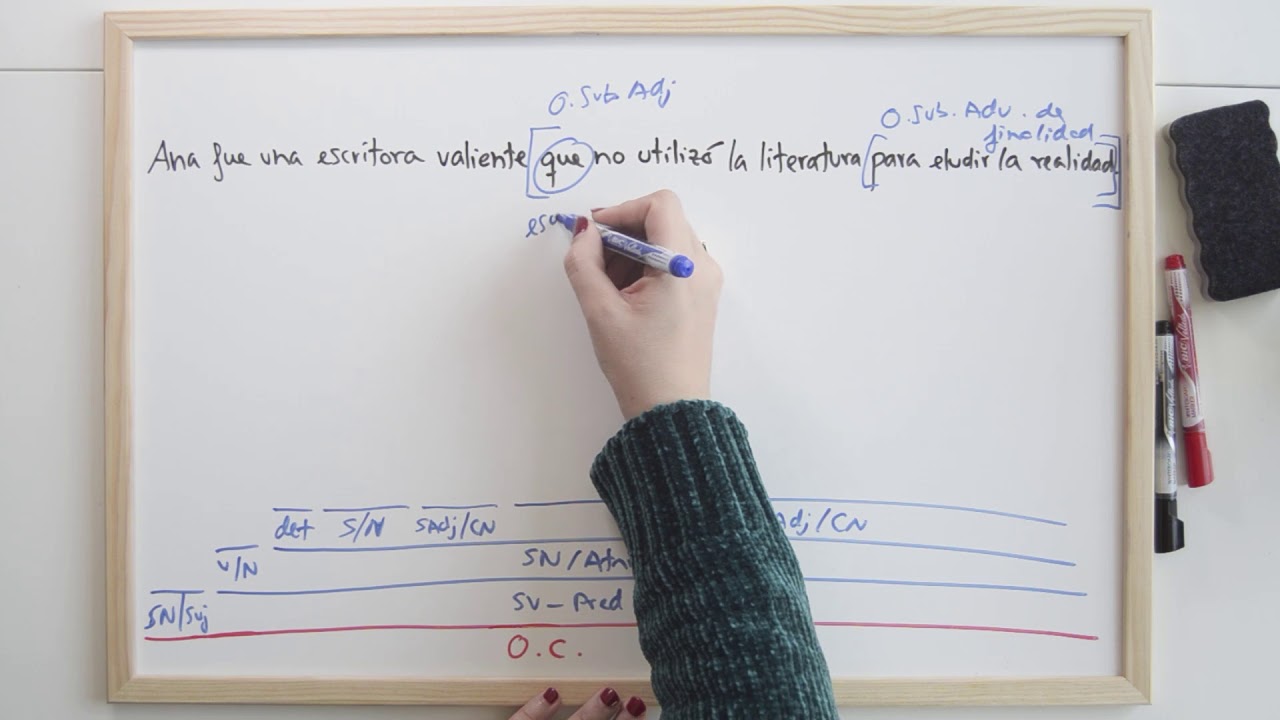 O. Sub Adj
O. Sub. Adv. de
finalidad
Ana fue una escritora valiente [que no utilizó la literatura [para eludir la realidad]]
det S/N SAdj/CN Adj/CN
V/N SN/Atr
SN/Suj SV - Pred
O.C.